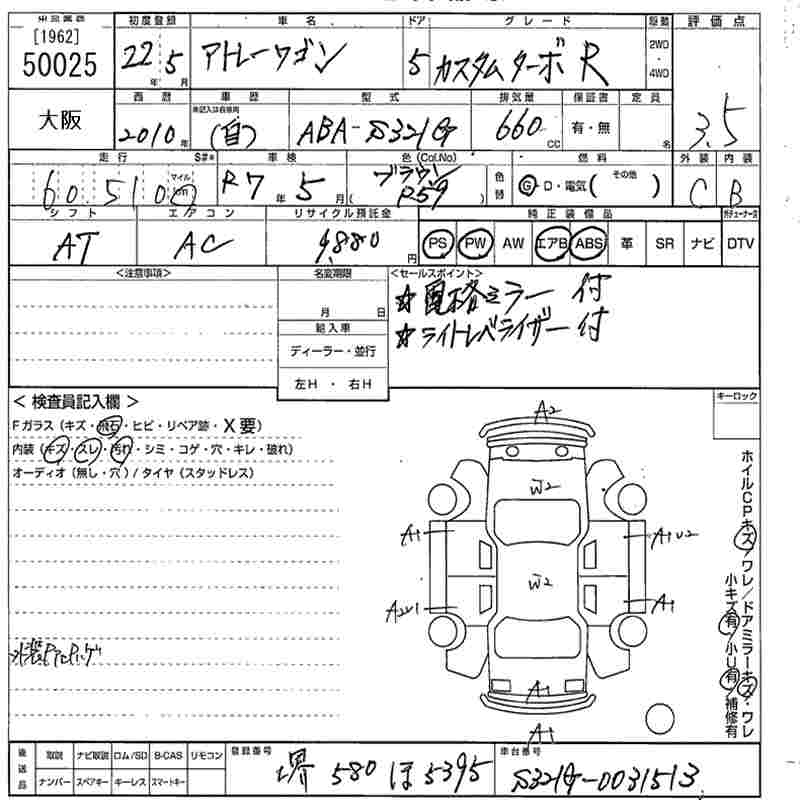 [1962]
50025
大阪
初度登録 車名 ドア グレード 駆動 評価点
22年 5月 アトレーワゴン 5 カスタムターボ R 2WD・4WD 3.5
西暦 車歴 型式 排気量 保証書 定員
2010年 (自) ABA-S321G 660cc 有・無 名
走行 S#* 車検 色(Col.No) 燃料 外装 内装
60,510 マイル km R7年 5月 ブラウン R59 色替 G・D・電気( その他 ) C B
シフト エアコン リサイクル預託金 純正装備品
AT AC 9,880円 PS PW AW エアB ABS 革 SR ナビ DTV
<注意事項> 名変期限 <セールスポイント>
月 日
☆電格ミラー 付
輸入車
☆ライトレベライザー 付
ディーラー・並行
左H・右H
<検査員記入欄> キーロック
Fガラス(キズ・飛石・ヒビ・リペア跡・X要)
内装(キズ・スレ・汚れ・シミ・コゲ・穴・キレ・破れ)
オーディオ(無し・穴)/タイヤ(スタッドレス)
A2
W2
A1 A1U2
W2
A2U1 A1
A1
A1
ホイルCPキズ/ワレ/ドアミラーキズ・ワレ
小キズ有/小U有/補修有
後送品 取説 ナビ取説 ロム/SD B-CAS リモコン 登録番号 車台番号
ナンバー スペアキー キーレス スマートキー 堺 580 ほ 5395 S321G-0031513